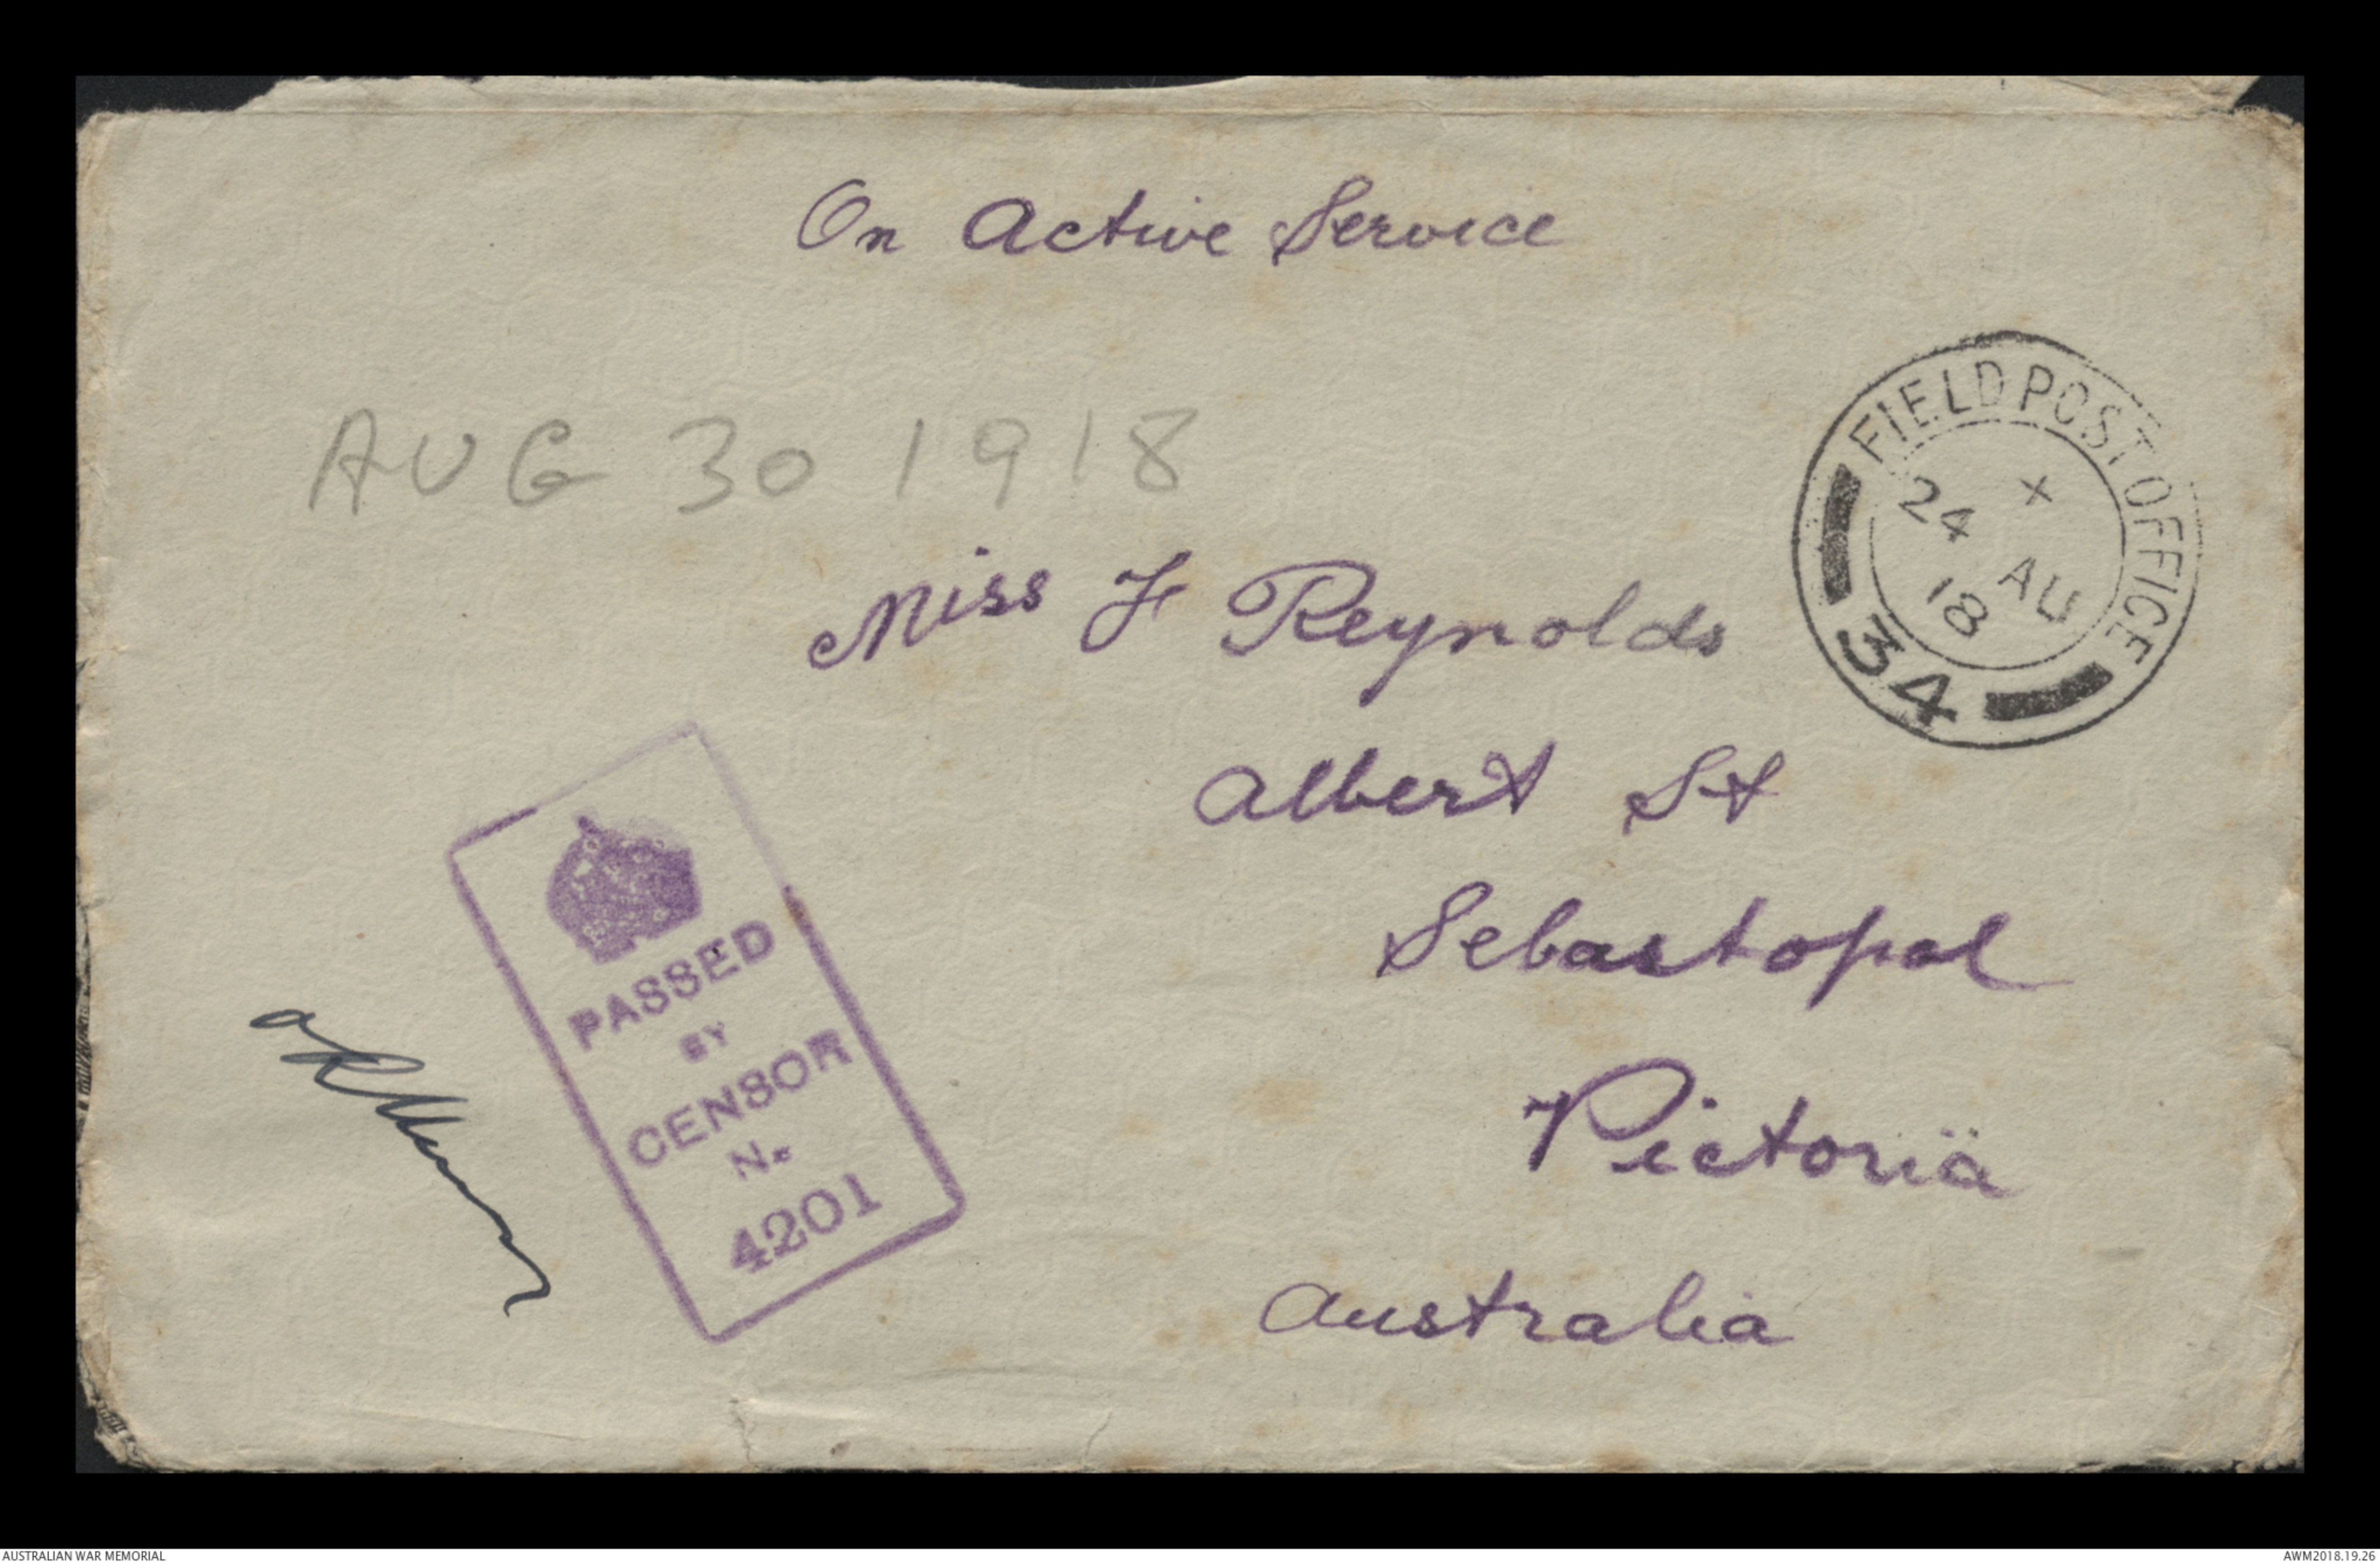 On Active Service
AUG 30 1918
FIELD POST OFFICE
X
24 AU
18
34
Miss F Reynolds
Albert St
Sebastopol
Victoria
Australia
PASSED
BY
CENSOR
No
4201
AUSTRALIAN WAR MEMORIAL
AWM2018.19.26